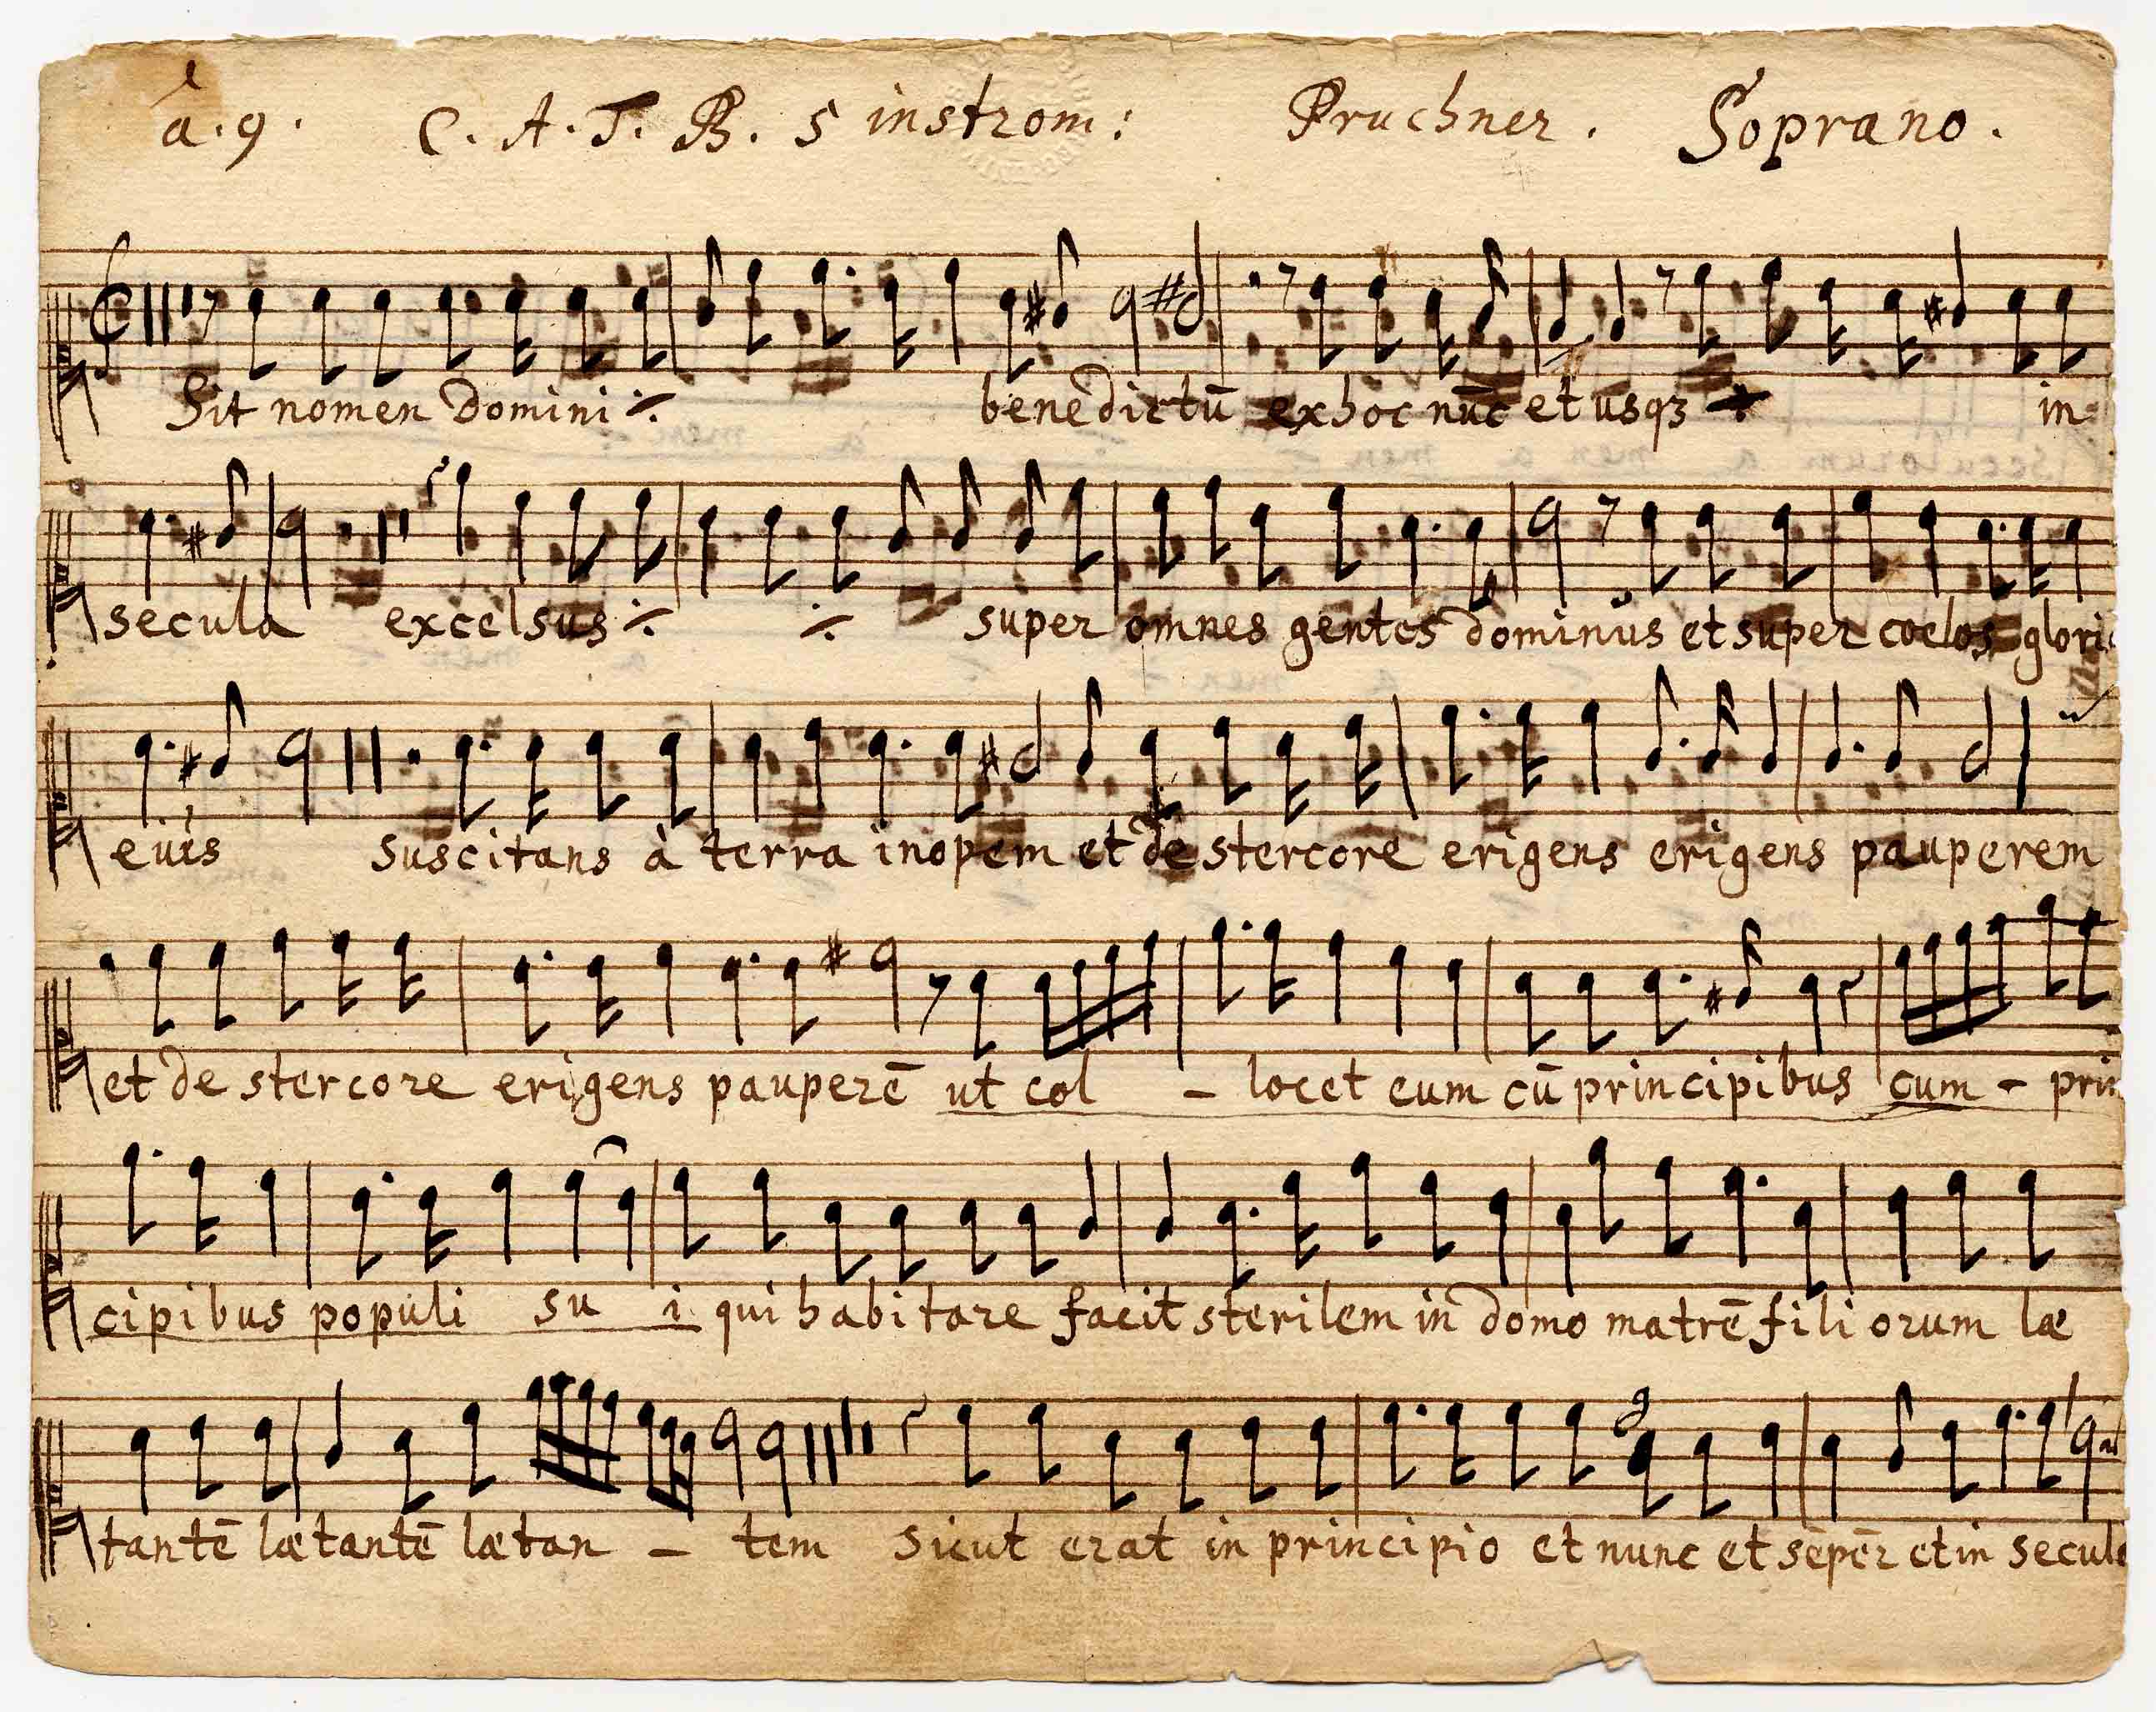 à. 9. C. A. T. B. 5 instrom: Pruchner. Soprano.
Sit nomen Domini ÷ benedictū ex hoc nūc et usqꝫ ÷ in
secula excelsus ÷ ÷ super omnes gentes dominus et super coelos glori
eius suscitans à terra inopem et de stercore erigens erigens pauperem
et de stercore erigens pauperē ut col - locet eum cū principibus cum - prin
cipibus populi su i qui habitare facit sterilem in domo matrē fili orum læ
tantē lætantē lætan - tem sicut erat in principio et nunc et sēpēr et in secul